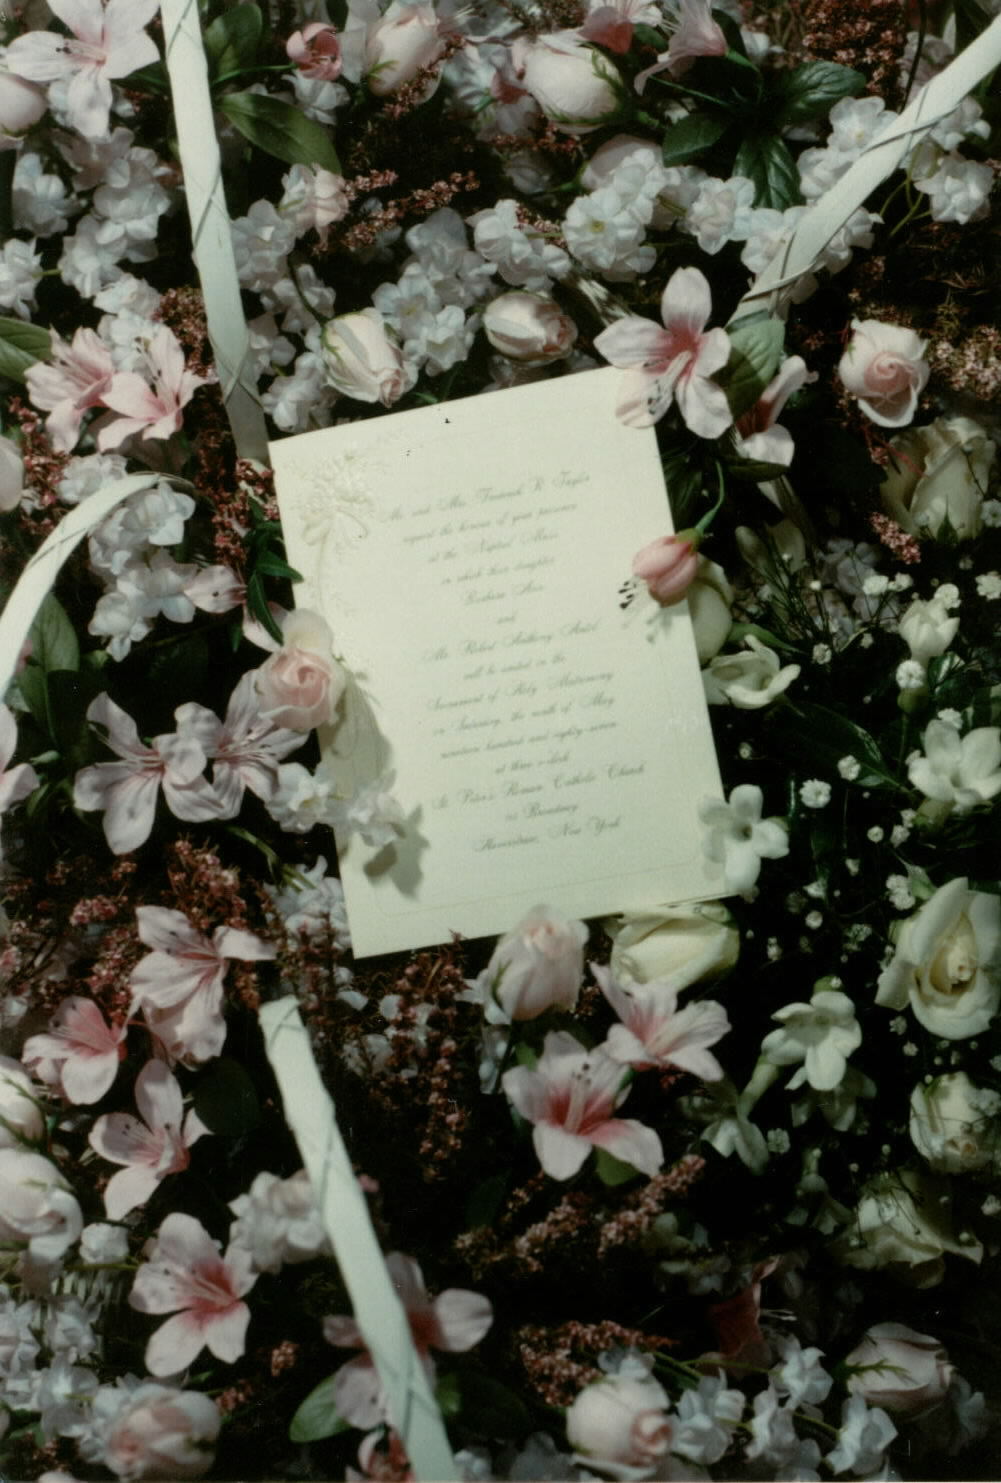 Mr. and Mrs. Frederick R. Taylor
request the honour of your presence
at the Nuptial Mass
in which their daughter
Barbara Ann
and
Mr. Robert Anthony
will be united in the
Sacrament of Holy Matrimony
on Saturday, the ninth of May
nineteen hundred and eighty-seven
at three o'clock
St. Peter's Roman Catholic Church
Broadway
New York